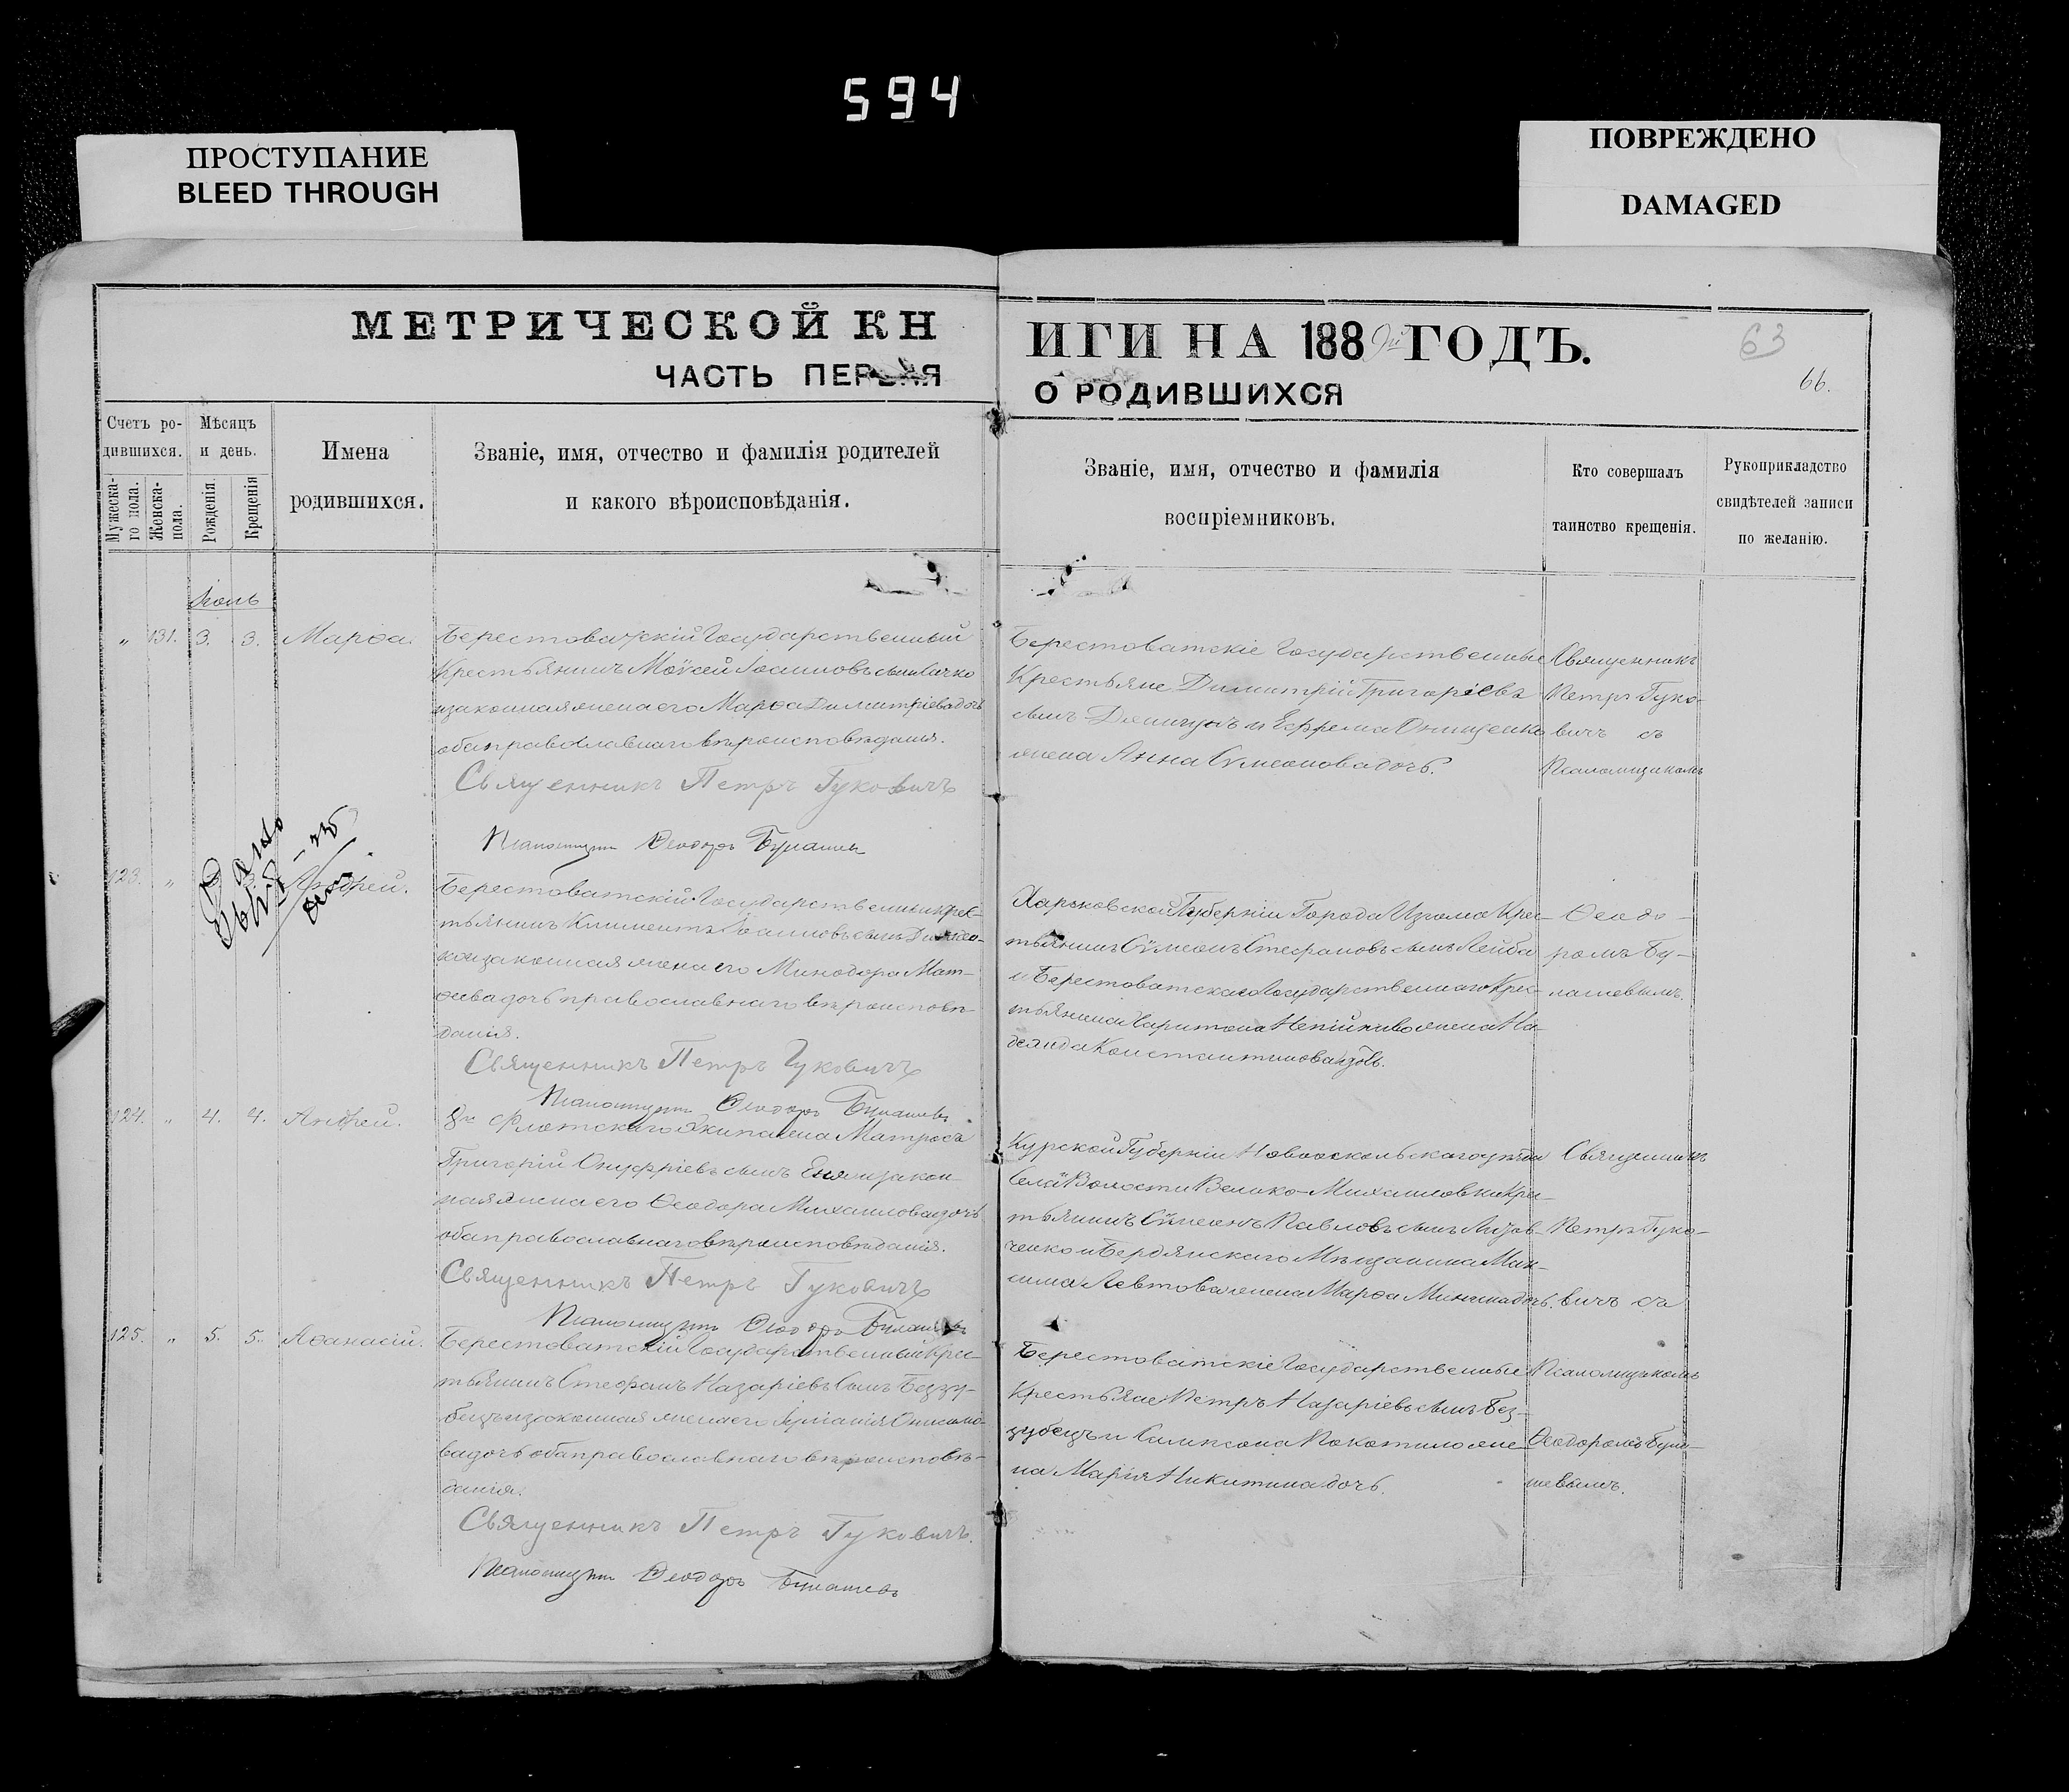 594
ПРОСТУПАНИЕ
BLEED THROUGH
ПОВРЕЖДЕНО
DAMAGED
МЕТРИЧЕСКОЙ КН
ИГИ НА 1889й ГОДЪ.
63
66.
ЧАСТЬ ПЕРВАЯ
О РОДИВШИХСЯ
Счетъ ро-
дившихся.
Мужеска-
го пола.
Женска-
пола.
Мѣсяцъ
и день.
Рожденія.
Крещенія
Имена
родившихся.
Званіе, имя, отчество и фамилія родителей
и какого вѣроисповѣданія.
Званіе, имя, отчество и фамилія
воспріемниковъ.
Кто совершалъ
таинство крещенія.
Рукоприкладство
свидѣтелей записи
по желанію.
„ 131. 3. 3. Марѳа.
Берестоватскій Государственный
Крестьянинъ Моѵсей Іоанновъ сынъ
и законная жена его Марѳа Димитріева дочь
оба православнаго вѣроисповѣданія.
Священникъ Петръ Гуковичъ
Псаломщикъ Ѳеодоръ Булашевъ
Берестоватскіе Государственные
Крестьяне Димитрій Григоріевъ
сынъ и Ефрема Онищенко
жена Анна Сѵмеонова дочь.
Священникъ
Петръ Гуко-
вичъ съ
Псаломщикомъ
123. „ Андрей.
Берестоватскій Государственный крес-
тьянинъ Климентъ Іоанновъ сынъ
законная жена его Минодора Мат-
ѳеева дочь православнаго вѣроисповѣ-
данія.
Священникъ Петръ Гуковичъ
Псаломщикъ Ѳеодоръ Булашевъ
Харьковской Губерніи Города Изюма Крес-
тьянинъ Сѵмеонъ Стефановъ сынъ
и Берестоватскаго Государственнаго Крес-
тьянина Харитона жена На-
дежда Константинова дочь.
Ѳеодо-
ромъ Бу-
лашевымъ.
124. „ 4. 4. Андрей.
Флотскаго Экипажа Матросъ
Григорій Онуфріевъ сынъ и закон-
ная жена его Ѳеодора Михаилова дочь
оба православнаго вѣроисповѣданія.
Священникъ Петръ Гуковичъ
Псаломщикъ Ѳеодоръ Булашевъ
Курской Губерніи Новооскольскаго уѣзда
Волости Велико-Михайловки Крес-
тьянинъ Сѵмеонъ Павловъ сынъ
и Бердянскаго Мѣщанина Мак-
сима жена Марѳа дочь.
Священникъ
Петръ Гуко-
вичъ съ
125. „ 5. 5. Аѳанасій.
Берестоватскій Государственный крес-
тьянинъ Стефанъ Назаріевъ Сынъ Беззу-
бецъ и законная жена его
ва дочь оба православнаго вѣроисповѣ-
данія.
Священникъ Петръ Гуковичъ.
Псаломщикъ Ѳеодоръ Булашевъ
Берестоватскіе Государственные
Крестьяне Петръ Назаріевъ сынъ Без-
зубецъ и Сампсона же-
на Марія Никитина дочь.
Псаломщикомъ
Ѳеодоромъ Була-
шевымъ.